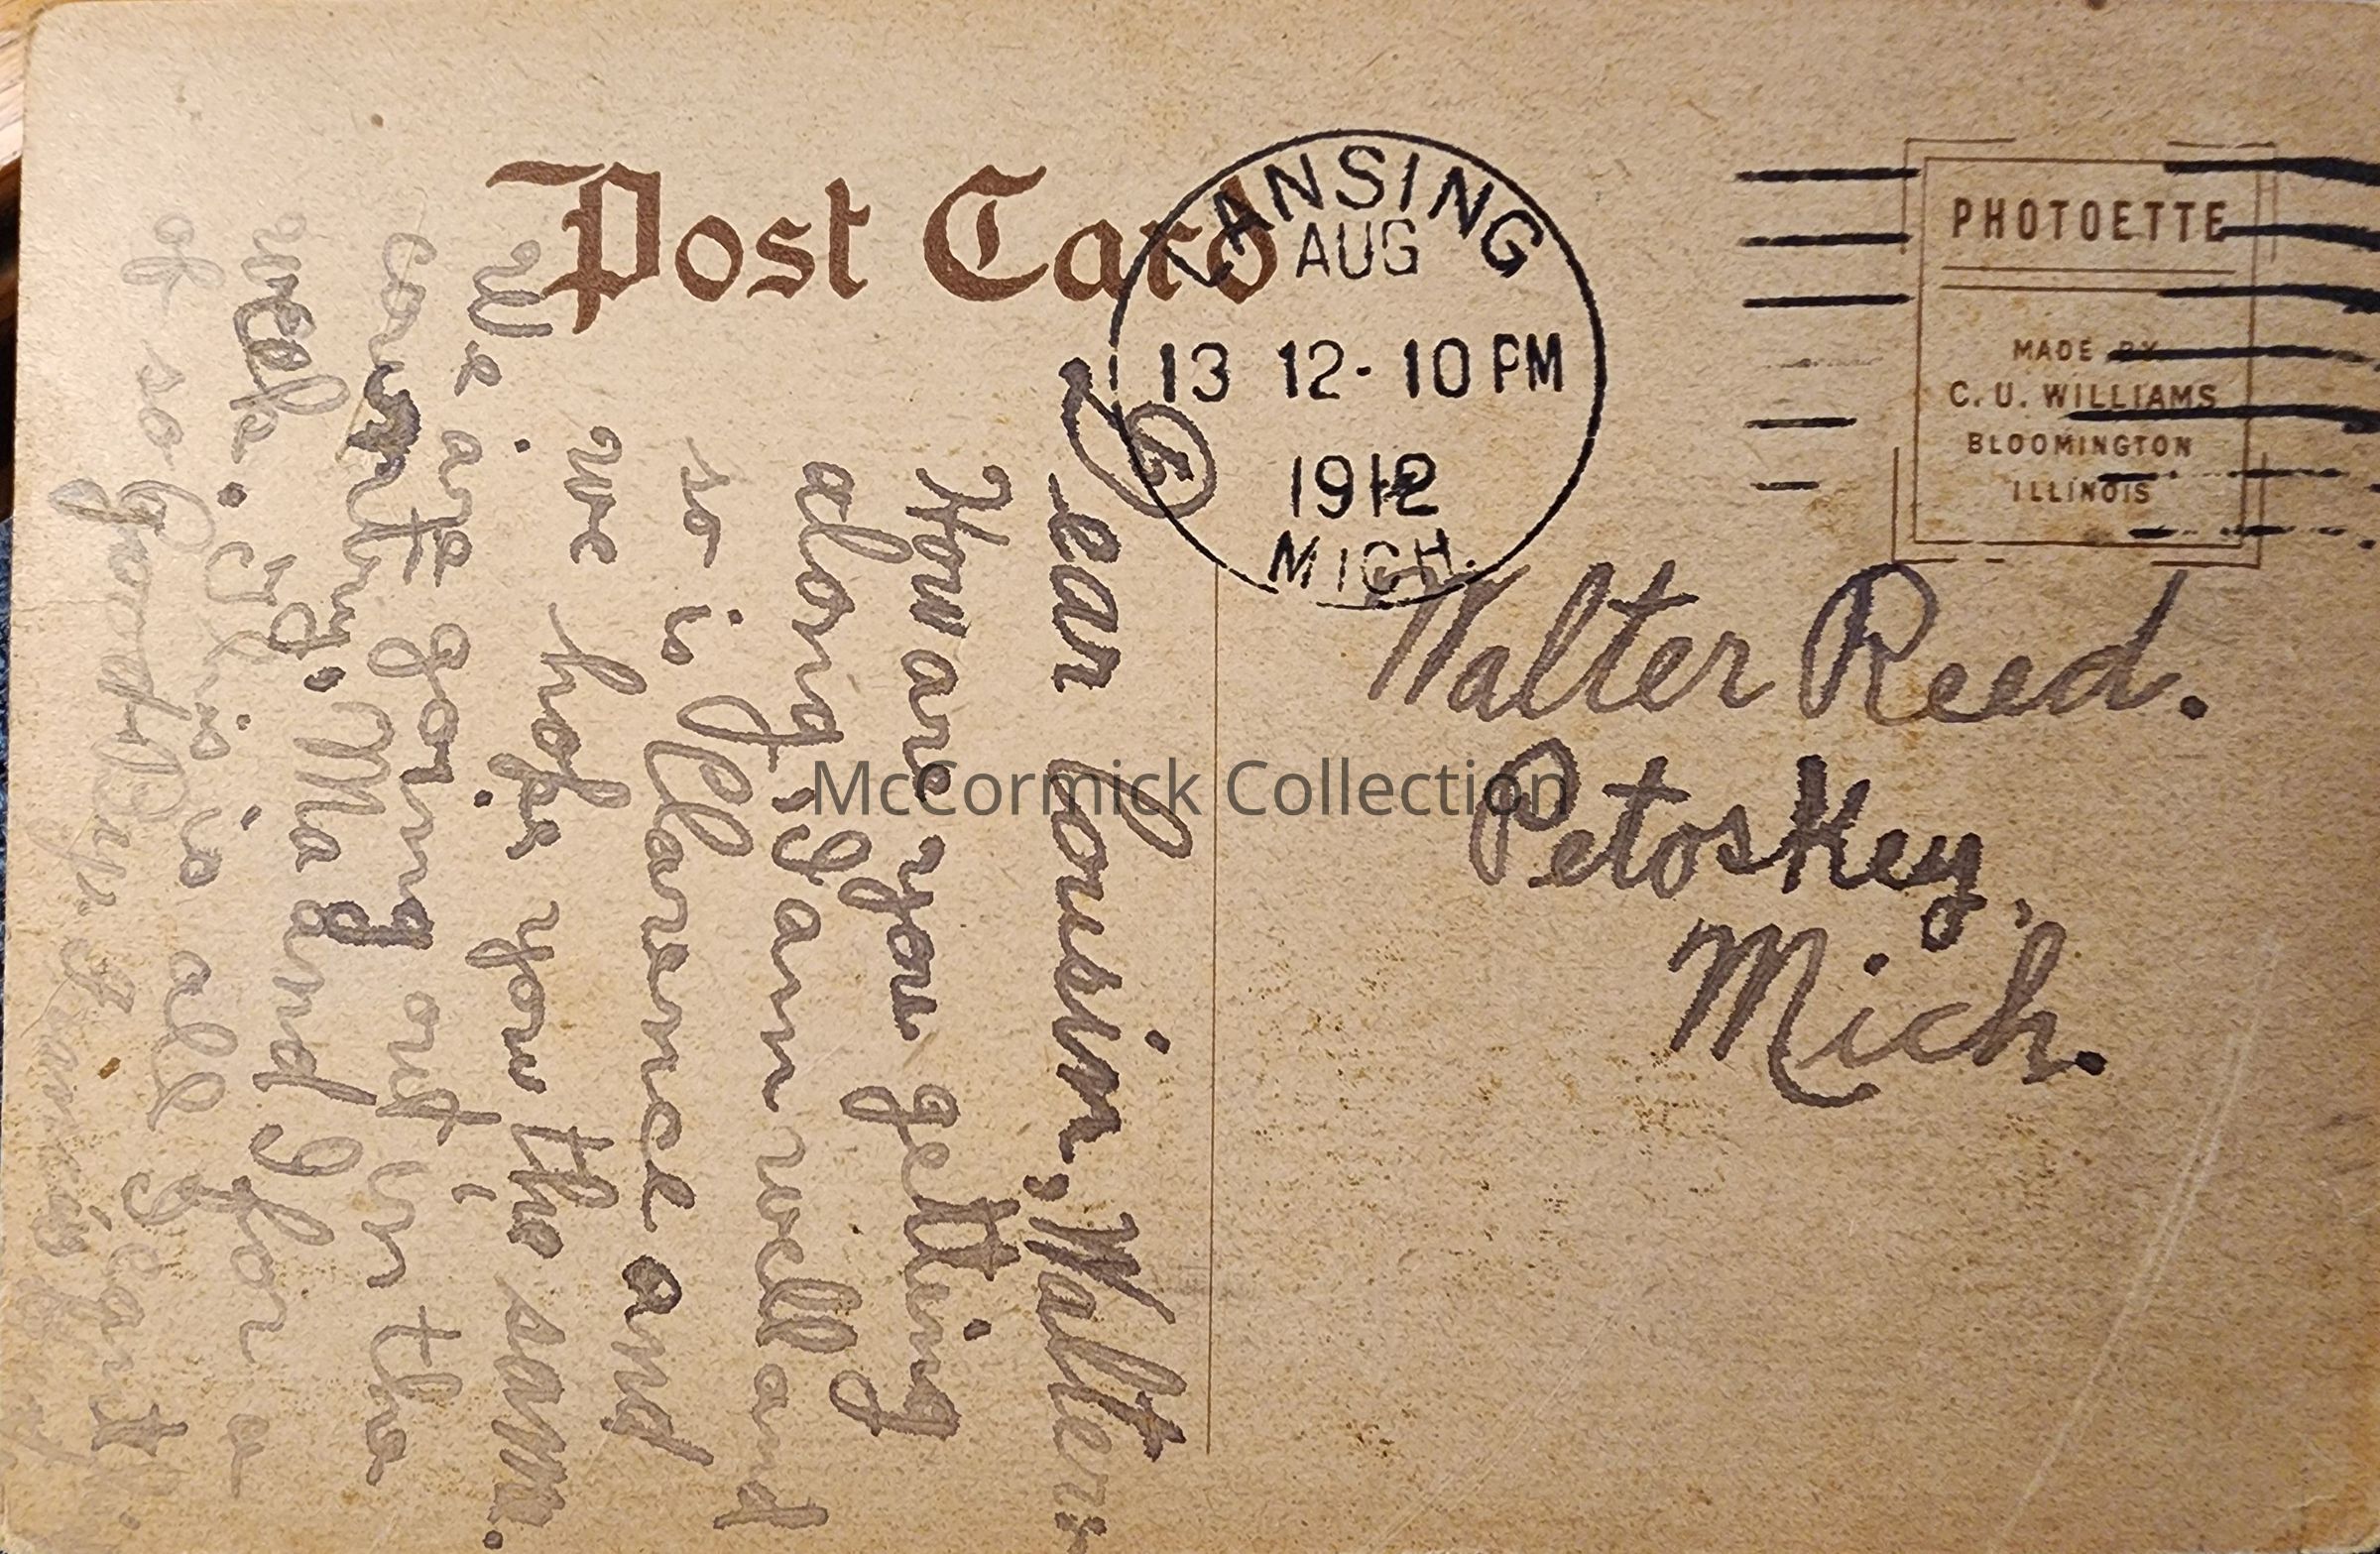 Post Card
LANSING
AUG
13 12-10 PM
1912
MICH.
PHOTOETTE
MADE BY
C. U. WILLIAMS
BLOOMINGTON
ILLINOIS
Walter Reed.
Petoskey,
Mich.
McCormick Collection
Dear Cousin, Walter:
How are you getting
along, I am well and
so is Clarence and
we hope you the sam.
We are going out in the
country, Ma and I for a
week. This is all I can't
of so Good Bye. Francis